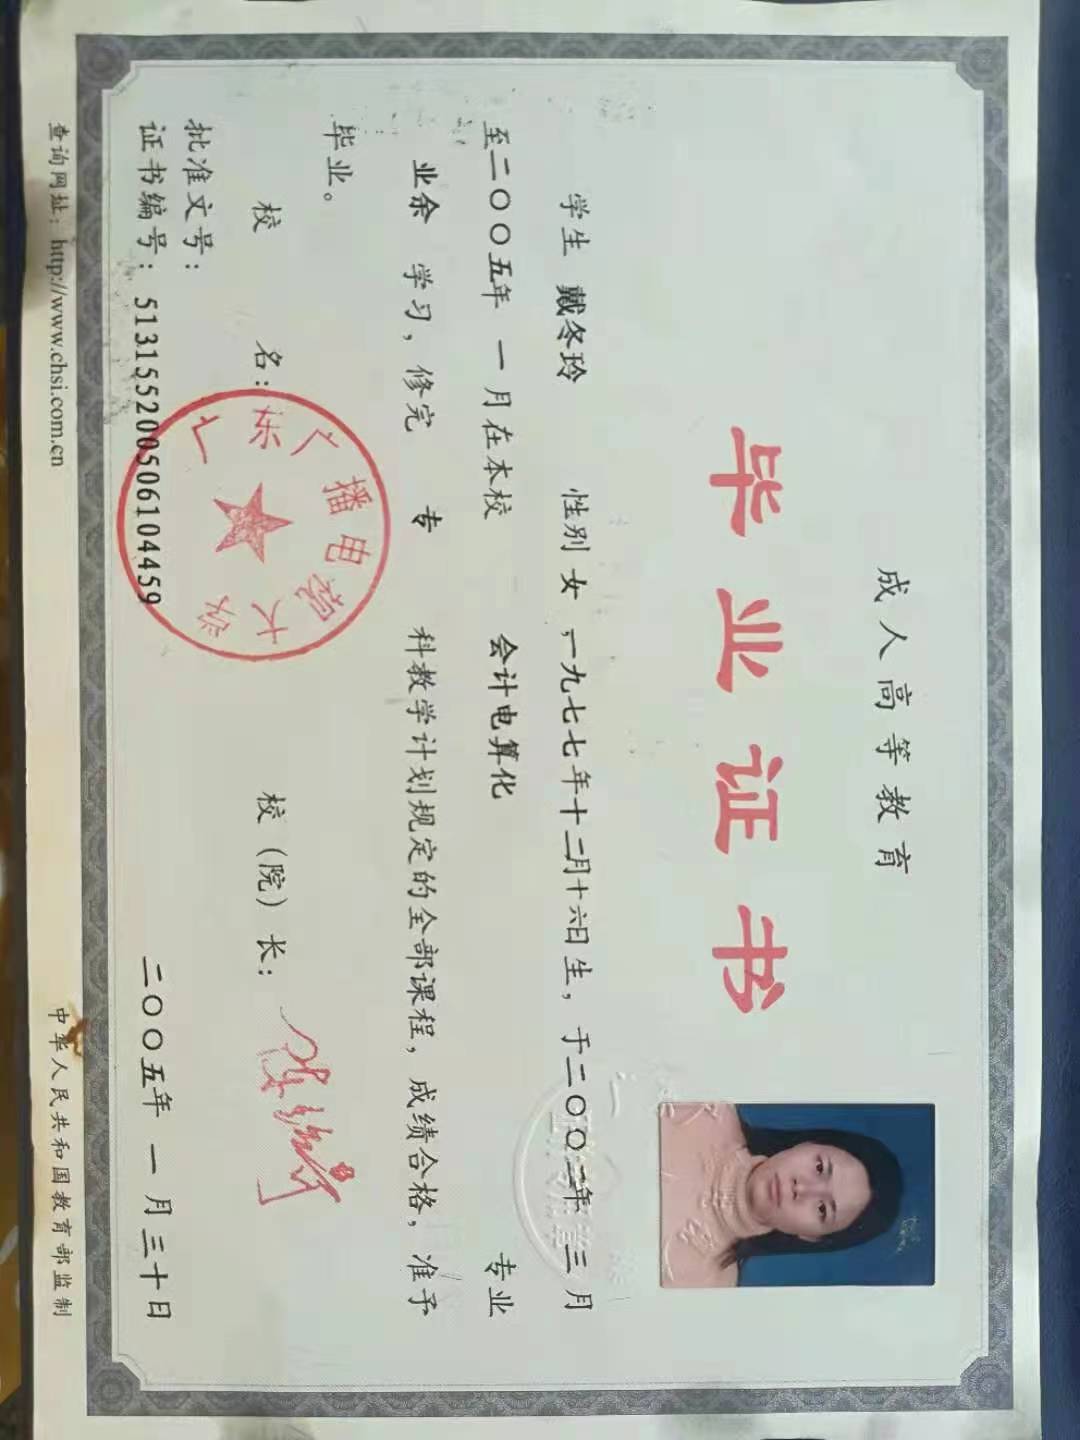 成人高等教育
毕业证书
学生 戴冬玲 性别 女，一九七七年十二月十六日生，于二〇〇二年 三 月
至二〇〇五年 一 月在本校 会计电算化 专业
业余 学习，修完 专 科教学计划规定的全部课程，成绩合格，准予
毕业。
校 名： 校（院）长：
广东广播电视大学
批准文号：
证书编号：513155200506104459 二〇〇五年 一 月三十日
查询网址：http://www.chsi.com.cn 中华人民共和国教育部监制